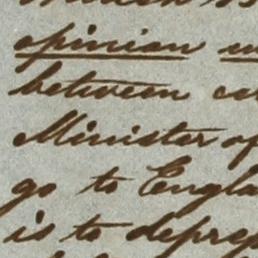 opinion
between
Minister of
go to Engla
is to deprep